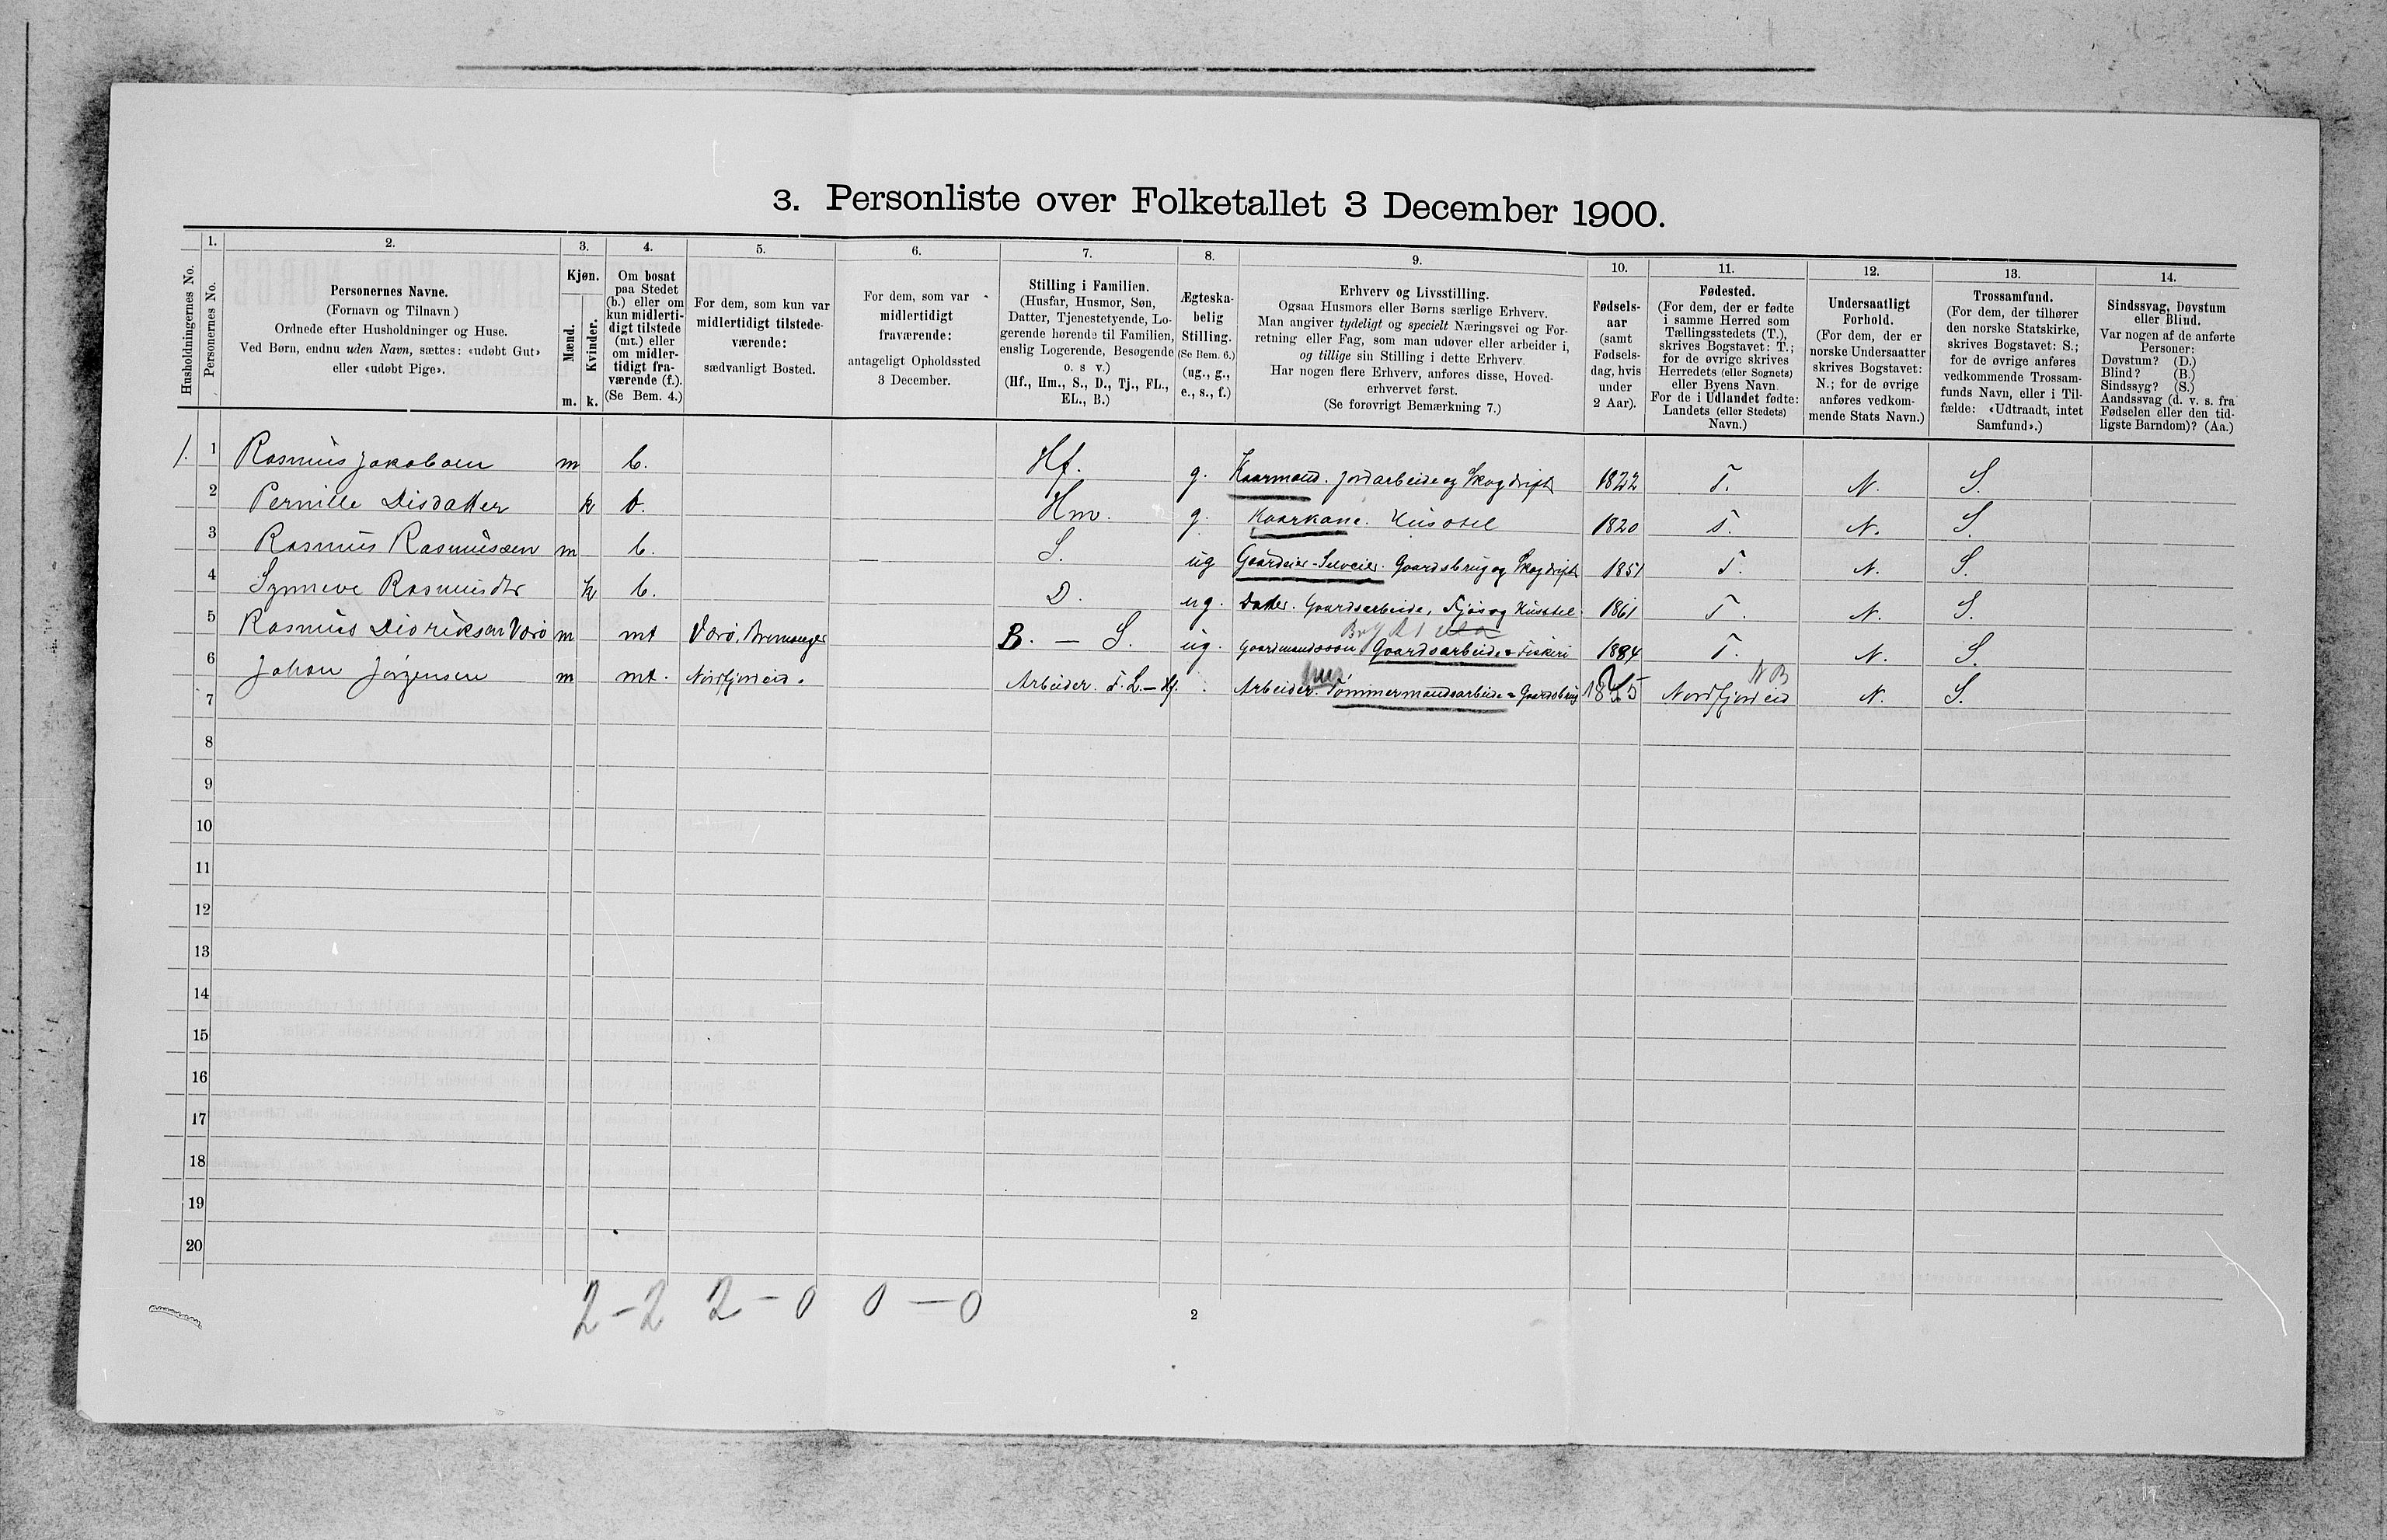 3. Personliste over Folketallet 3 December 1900.
Husholdningernes No.
1.
Personernes No.
2.
Personernes Navne.
(Fornavn og Tilnavn)
Ordnede efter Husholdninger og Huse.
Ved Børn, endnu uden Navn, sættes: «udøbt Gut»
eller «udøbt Pige».
3.
Kjøn.
Mænd.
Kvinder.
m. k.
4.
Om bosat
paa Stedet
(b.) eller om
kun midlerti-
digt tilstede
(mt.) eller
om midler-
tidigt fra-
værende (f.).
(Se Bem. 4.)
5.
For dem, som kun var
midlertidigt tilstede-
værende:
sædvanligt Bosted.
6.
For dem, som var
midlertidigt
fraværende:
antageligt Opholdssted
3 December.
7.
Stilling i Familien.
(Husfar, Husmor, Søn,
Datter, Tjenestetyende, Lo-
gerende hørende til Familien,
enslig Logerende, Besøgende
o. s v.)
(Hf., Hm., S., D., Tj., FL.,
EL., B.)
8.
Ægteska-
belig
Stilling.
(Se Bem. 6.)
(ug., g.,
e., s., f.)
9.
Erhverv og Livsstilling.
Ogsaa Husmors eller Børns særlige Erhverv.
Man angiver tydeligt og specielt Næringsvei og For-
retning eller Fag, som man udøver eller arbeider i,
og tillige sin Stilling i dette Erhverv.
Har nogen flere Erhverv, anføres disse, Hoved-
erhvervet først.
(Se forøvrigt Bemærkning 7.)
10.
Fødsels-
aar
(samt
Fødsels-
dag, hvis
under
2 Aar).
11.
Fødested.
(For dem, der er fødte
i samme Herred som
Tællingsstedets (T.),
skrives Bogstavet: T.;
for de øvrige skrives
Herredets (eller Sognets)
eller Byens Navn.
For de i Udlandet fødte:
Landets (eller Stedets)
Navn.)
12.
Undersaatligt
Forhold.
(For dem, der er
norske Undersaatter
skrives Bogstavet:
N.; for de øvrige
anføres vedkom-
mende Stats Navn.)
13.
Trossamfund.
(For dem, der tilhører
den norske Statskirke,
skrives Bogstavet: S.;
for de øvrige anføres
vedkommende Trossam-
funds Navn, eller i Til-
fælde: «Udtraadt, intet
Samfund».)
14.
Sindssvag, Døvstum
eller Blind.
Var nogen af de anførte
Personer:
Døvstum? (D.)
Blind? (B.)
Sindssyg? (S.)
Aandssvag (d. v. s. fra
Fødselen eller den tid-
ligste Barndom)? (Aa.)
1. 1 Rasmus Jakobsen m b. Hf. g. Kaarmand. Jordarbeide og Skogdrift 1822 T. N. S.
2 Pernille Disdatter k b. Hm. g. Kaarkone. Husstel 1820 T. N. S.
3 Rasmus Rasmussen m b. S. ug Gaardeier-Selveier. Gaardsbrug og Skogdrift 1851 T. N. S.
4 Synneve Rasmusdtr k b. D. ug. Datter. Gaardsarbeide, Fjøs og Husstel. 1861 T. N. S.
5 Rasmus Didriksen Værø m mt Værø, Bremanger B. — S. ug. Gaardmandssøn Gaardsarbeide - Fiskeri 1884 T. N. S.
6 Johan Jørgensen m mt. Nordfjordeid. Arbeider. F. L. — Hf. Arbeider. Tømmermandsarbeide - Gaardsbrug Nordfjordeid N B N. S.
7
8
9
10
11
12
13
14
15
16
17
18
19
20
2 - 2 2 - 0 0 — 0
2